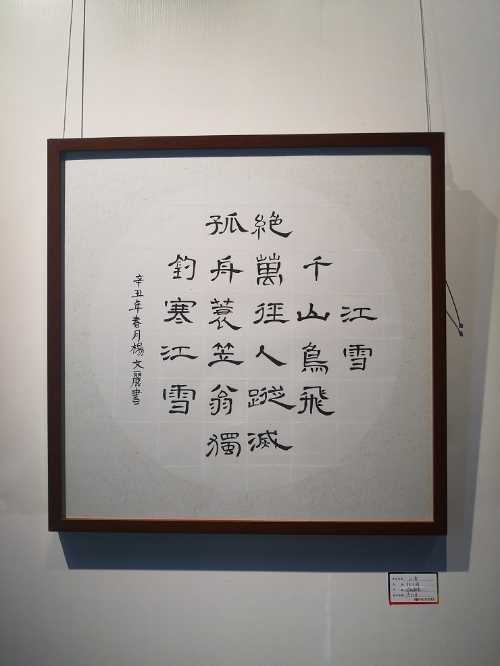 江雪
千山鳥飛
絶萬徑人蹤滅
孤舟蓑笠翁獨
釣寒江雪
辛丑年春月楊文麗書